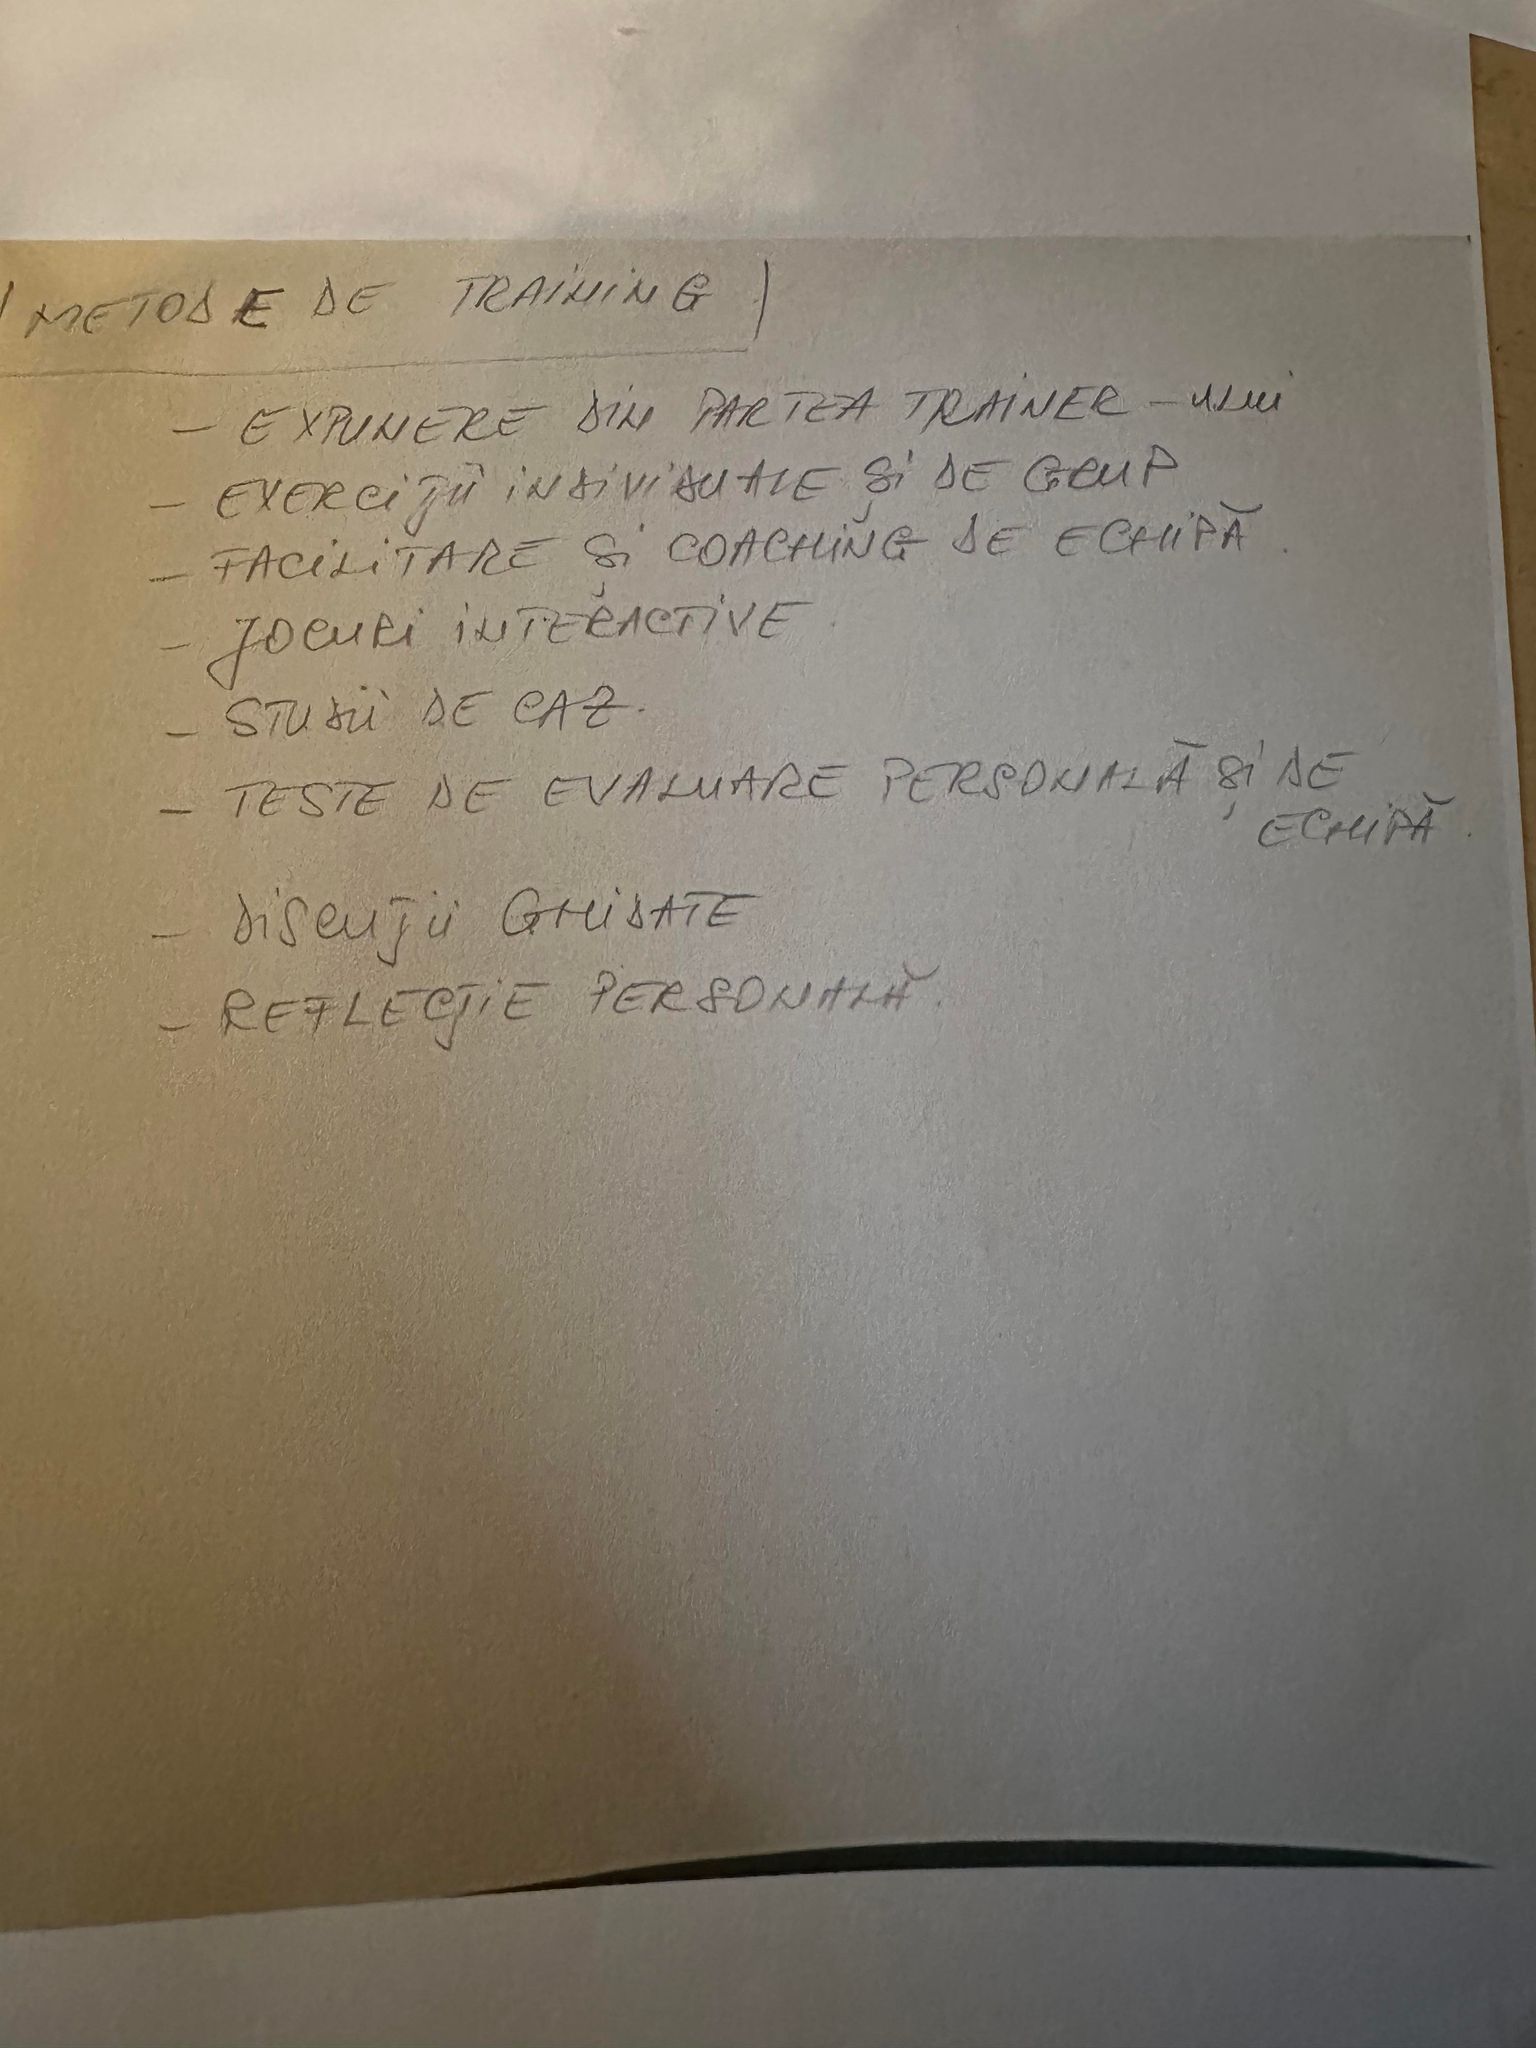 METODE DE TRAINING
- EXPUNERE DIN PARTEA TRAINER-ului
- EXERCIȚII INDIVIDUALE ȘI DE GRUP
- FACILITARE ȘI COACHING DE ECHIPĂ.
- JOCURI INTERACTIVE.
- STUDII DE CAZ.
- TESTE DE EVALUARE PERSONALĂ ȘI DE
ECHIPĂ.
- DISCUȚII GHIDATE
- REFLECȚIE PERSONALĂ.